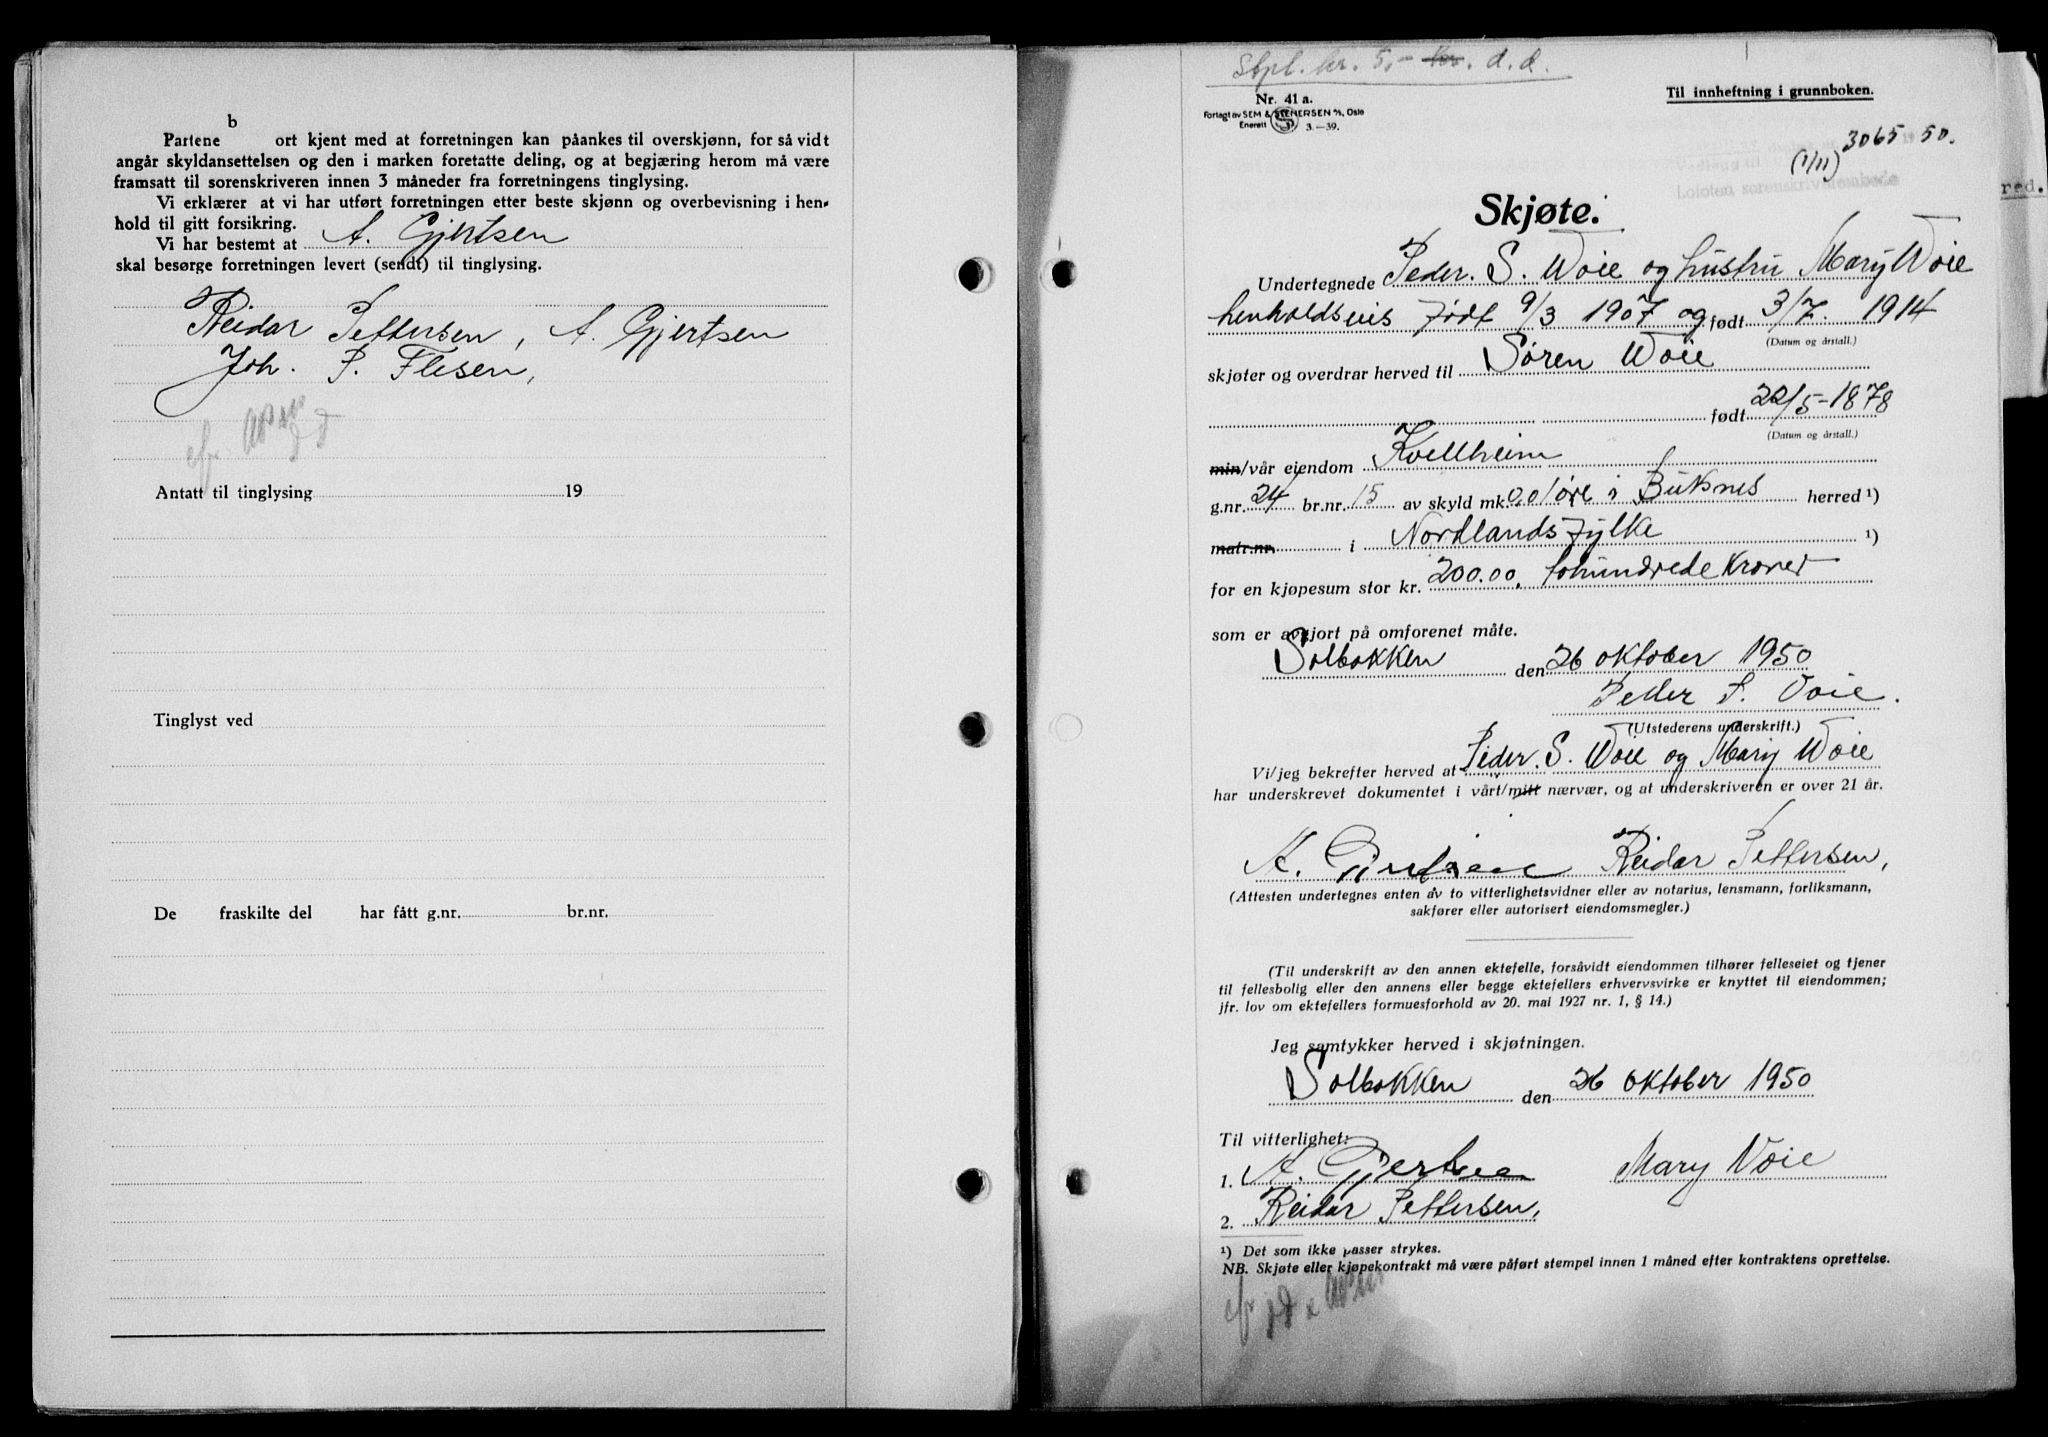 b
Partene ort kjent med at forretningen kan påankes til overskjønn, for så vidt
angår skyldansettelsen og den i marken foretatte deling, og at begjæring herom må være
framsatt til sorenskriveren innen 3 måneder fra forretningens tinglysing.
Vi erklærer at vi har utført forretningen etter beste skjønn og overbevisning i hen-
hold til gitt forsikring.
Vi har bestemt at A. Gjertsen
skal besørge forretningen levert (sendt) til tinglysing.
Reidar Pettersen, A. Gjertsen
Joh. P. Flesen,
Antatt til tinglysing 19
Tinglyst ved
De fraskilte del har fått g.nr. br.nr.
Stpl. kr. 5,- kr. d.d.
Nr. 41 a.
Forlagt av SEM & STENERSEN A/S, Oslo
Enerett S 3.—39.
Til innheftning i grunnboken.
3065 50.
(1/11)
Lofoten sorenskriverembede
red.
Skjøte.
Undertegnede Peder. S. Woie og hustru Mary Woie
henholdsvis født 9/3 1907 og født 3/7. 1914
(Datum og årstall.)
skjøter og overdrar herved til Søren Woie
født 22/5-1878
(Datum og årstall.)
min/vår eiendom Kvellheim
g.nr. 24 br.nr. 15 av skyld mk. 0,01 øre i Buksnes herred ¹)
matr.nr. i Nordlands fylke ¹)
for en kjøpesum stor kr. 200.00. tohundrede kroner
som er avgjort på omforenet måte.
Solbakken den 26 oktober 1950
Peder S. Voie.
(Utstederens underskrift.)
Vi/jeg bekrefter herved at Peder. S. Woie og Mary Woie
har underskrevet dokumentet i vårt/mitt nærvær, og at underskriveren er over 21 år.
A. Gjertsen Reidar Pettersen,
(Attesten undertegnes enten av to vitterlighetsvidner eller av notarius, lensmann, forliksmann,
sakfører eller autorisert eiendomsmegler.)
(Til underskrift av den annen ektefelle, forsåvidt eiendommen tilhører felleseiet og tjener
til fellesbolig eller den annens eller begge ektefellers erhvervsvirke er knyttet til eiendommen;
jfr. lov om ektefellers formuesforhold av 20. mai 1927 nr. 1, § 14.)
Jeg samtykker herved i skjøtningen.
Solbakken den 26 oktober 1950
Til vitterlighet:
1. A. Gjertsen Mary Voie
2. Reidar Pettersen,
¹) Det som ikke passer strykes.
NB. Skjøte eller kjøpekontrakt må være påført stempel innen 1 måned efter kontraktens oprettelse.